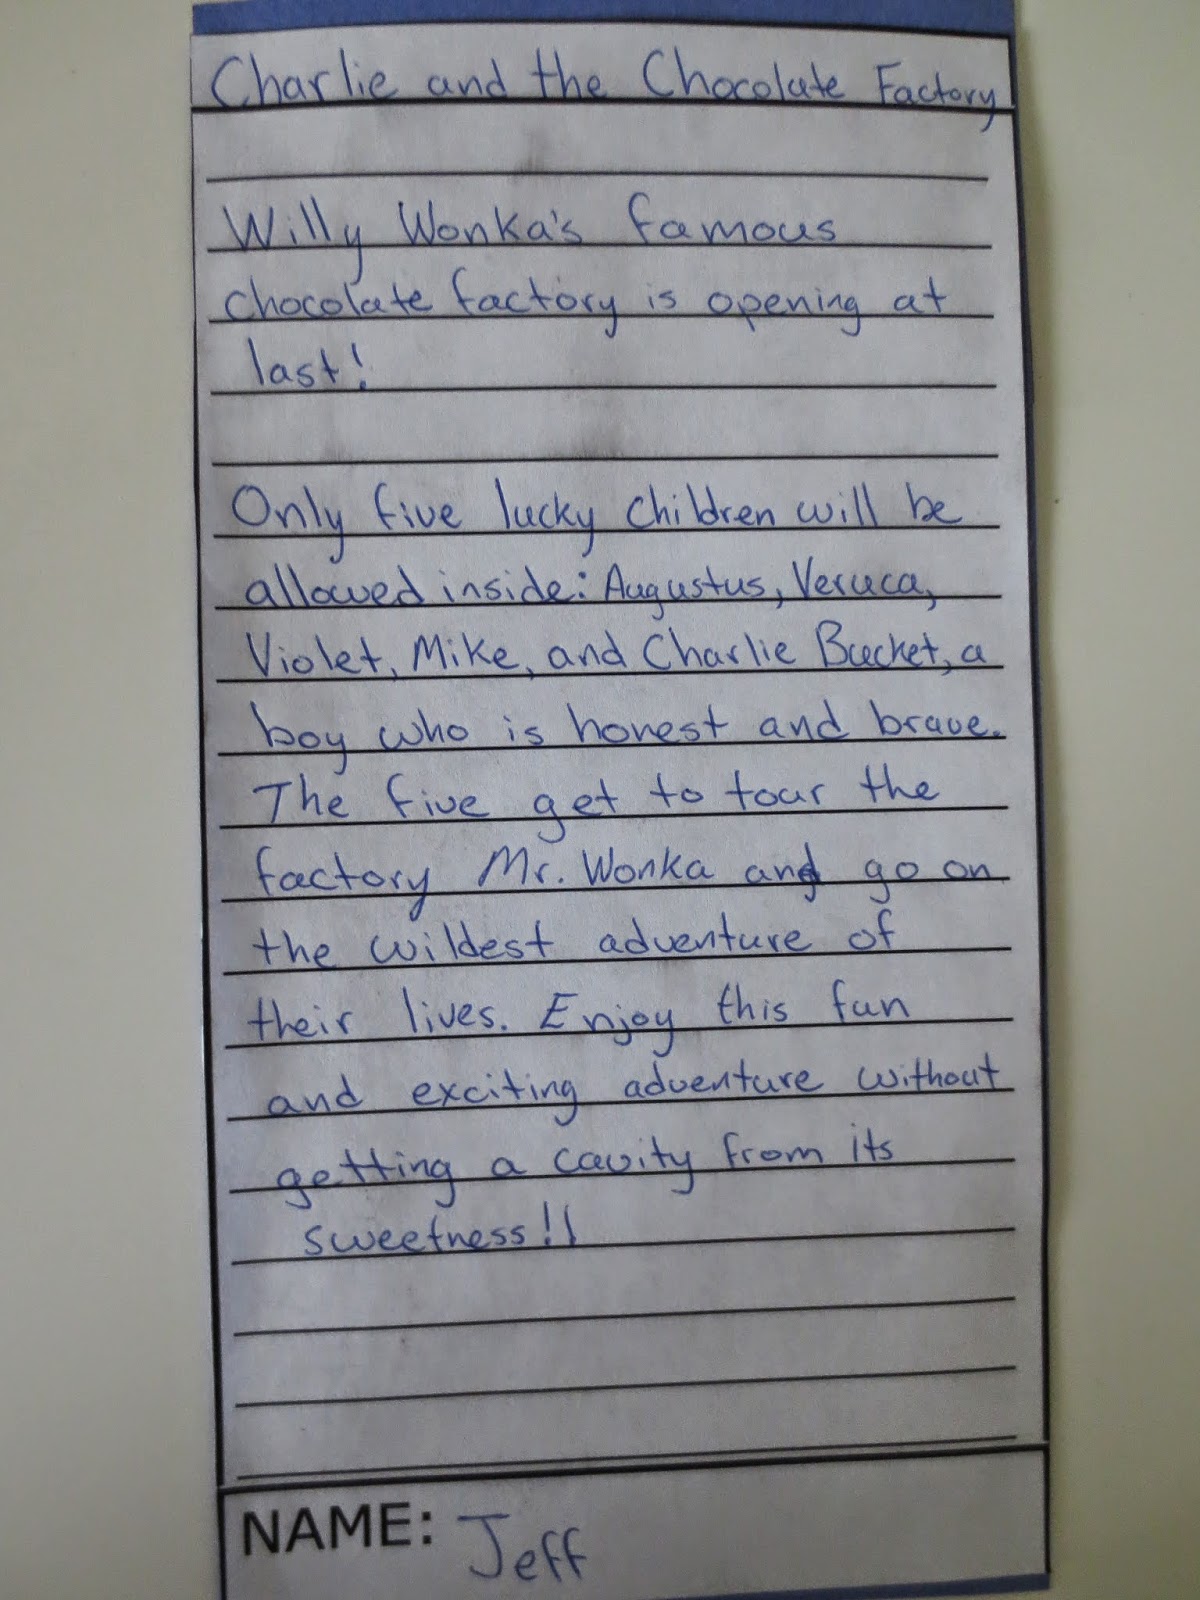 Charlie and the Chocolate Factory
Willy Wonka's famous
chocolate factory is opening at
last!
Only five lucky children will be
allowed inside: Augustus, Veruca,
Violet, Mike, and Charlie Bucket, a
boy who is honest and brave.
The five get to tour the
factory Mr. Wonka and go on
the wildest adventure of
their lives. Enjoy this fun
and exciting adventure without
getting a cavity from its
sweetness!!
NAME: Jeff